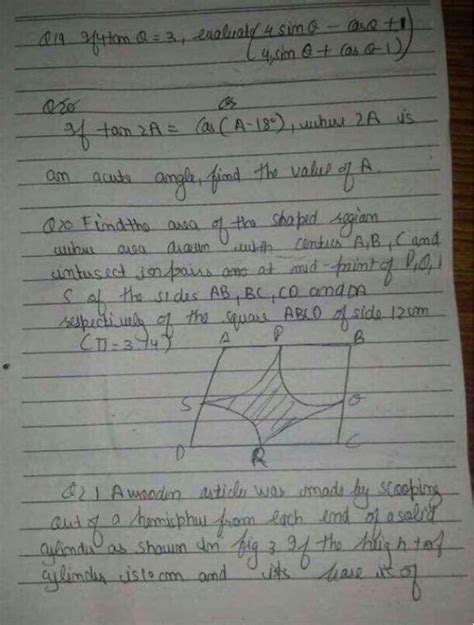 Q19 If 4 tan θ = 3, evaluate (4 sin θ - cos θ + 1)
(4 sin θ + cos θ - 1)
Q20 Or
If tan 2A = Cos (A - 18°), where 2A is
an acute angle, find the value of A.
Q20 Find the area of the shaped region
where area drawn with centres A, B, C and
intersect in pairs are at mid-point of P, Q, 
S of the sides AB, BC, CD and DA
respectively of the square ABCD of side 12cm
(π = 3.14)
A P B
S Q
D R C
Q21 A wooden article was made by scooping
out of a hemisphere from each end of a solid
cylinder as shown in fig 3 If the height of
cylinder is 10 cm and its base is of